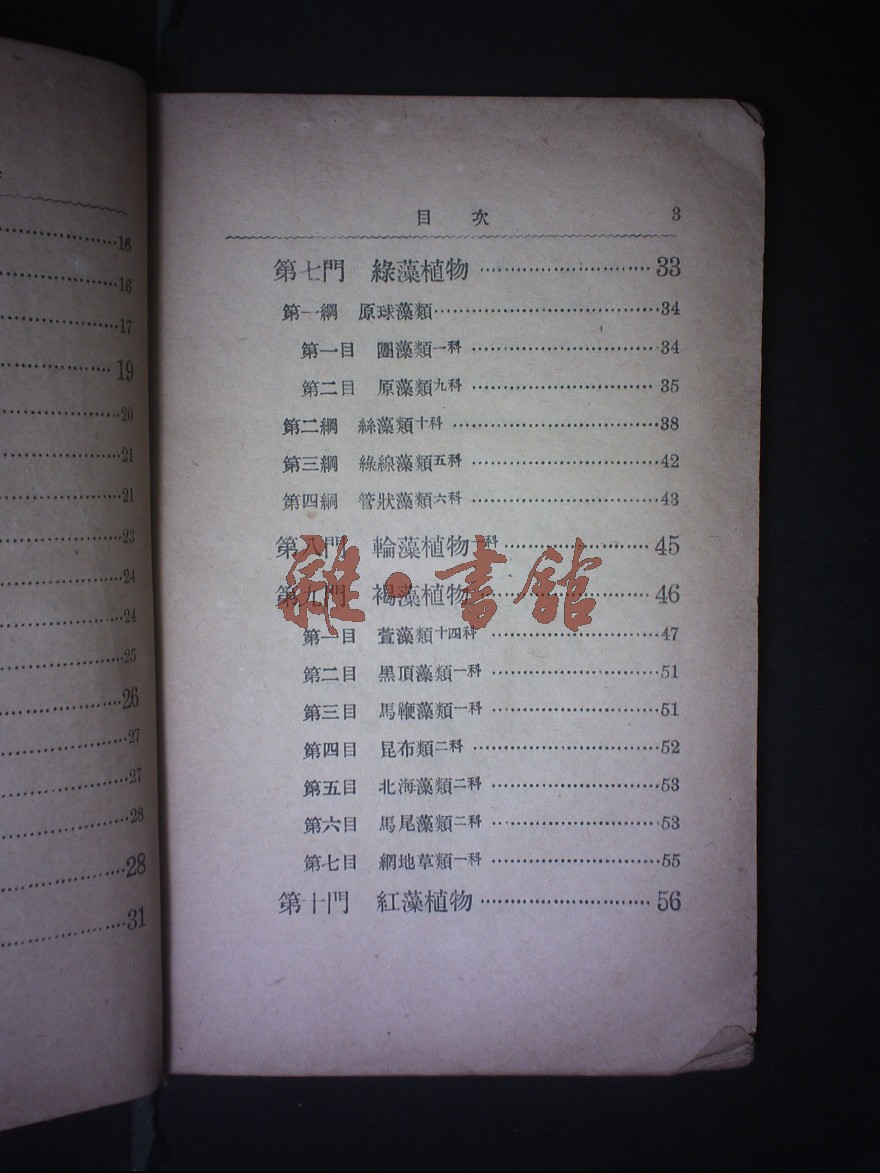 16
16
17
19
20
21
21
23
24
24
25
26
27
27
28
28
31
目 次 3
第七門 綠藻植物 ························ 33
第一綱 原球藻類 ························ 34
第一目 團藻類一科 ························ 34
第二目 原藻類九科 ························ 35
第二綱 絲藻類十科 ························ 38
第三綱 綠線藻類五科 ························ 42
第四綱 管狀藻類六科 ························ 43
第八門 輪藻植物一科 ························ 45
第九門 褐藻植物 ························ 46
雜·書館
第一目 萱藻類十四科 ························ 47
第二目 黑頂藻類一科 ························ 51
第三目 馬鞭藻類一科 ························ 51
第四目 昆布類二科 ························ 52
第五目 北海藻類二科 ························ 53
第六目 馬尾藻類二科 ························ 53
第七目 網地草類一科 ························ 55
第十門 紅藻植物 ························ 56